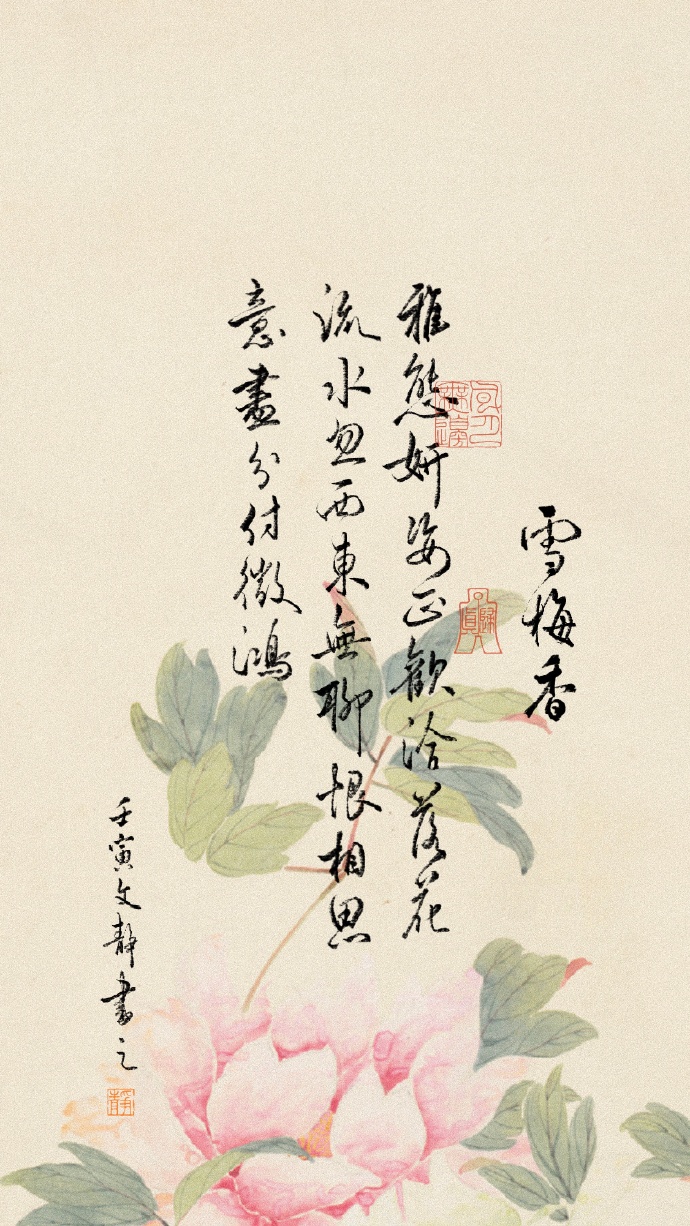 雪梅香
雅態妍姿正歡洽落花
流水忽西東無聊恨相思
意盡分付微鴻
壬寅文靜書之
靜